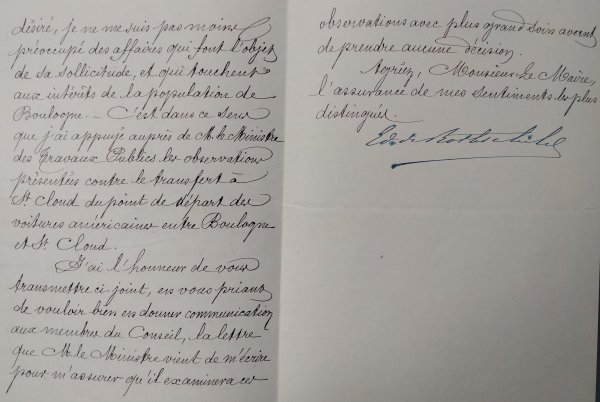 désiré, je ne me suis pas moins
préoccupé des affaires qui font l'objet
de sa sollicitude, et qui touchent
aux intérêts de la population de
Boulogne. - C'est dans ce sens
que j'ai appuyé auprès de M. le Ministre
des Travaux Publics les observations
présentées contre le transfert à
St Cloud du point de départ des
voitures américaines entre Boulogne
et St Cloud.
J'ai l'honneur de vous
transmettre ci-joint, en vous priant
de vouloir bien en donner communication
aux membres du Conseil, la lettre
que M. le Ministre vient de m'écrire
pour m'assurer qu'il examinera ces
observations avec plus grand soin avant
de prendre aucune décision.
Agréez, Monsieur Le Maire,
l'assurance de mes sentiments les plus
distingués.
Ed. de Rothschild